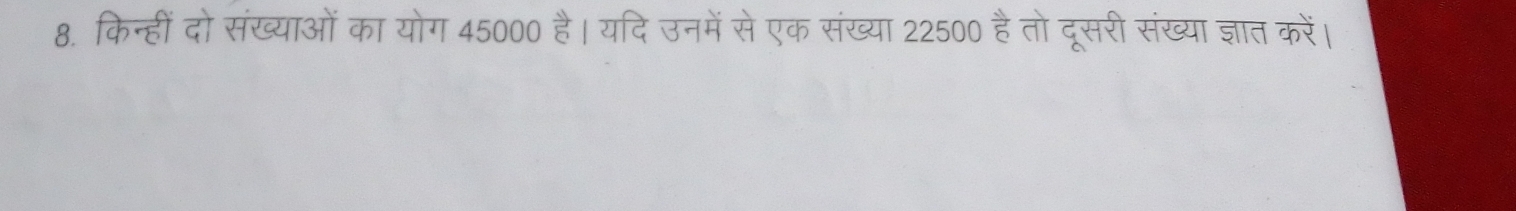 8. किन्हीं दो संख्याओं का योग 45000 है। यदि उनमें से एक संख्या 22500 है तो दूसरी संख्या ज्ञात करें।